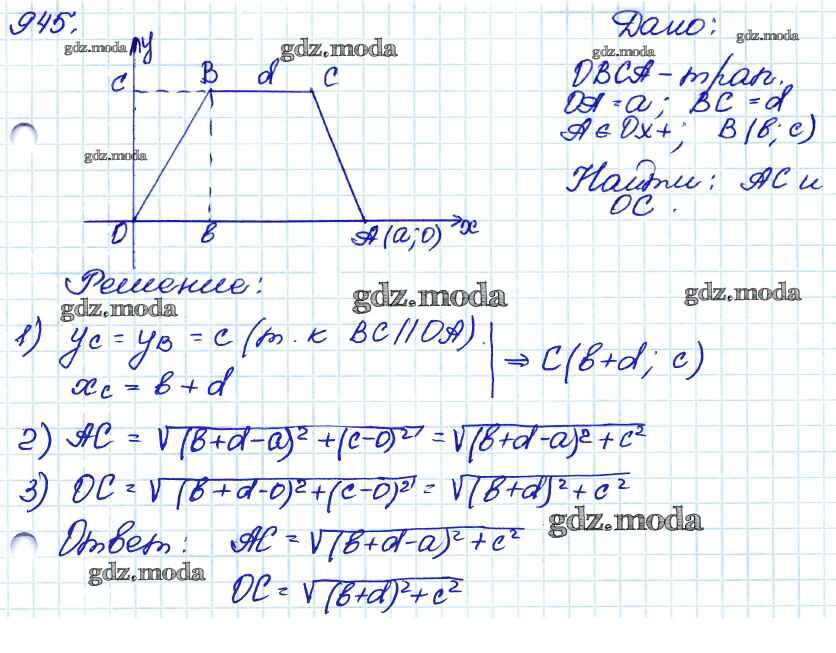 945.
gdz.moda
gdz.moda
gdz.moda
gdz.moda
Дано:
OBCA – трап.
OA = a; BC = d
A ∈ Ox+; B(b; c)
Найти: AC и
OC.
y
C B d C
gdz.moda
O B A(a;0) x
Решение:
gdz.moda
gdz.moda
gdz.moda
1) y_C = y_B = c (т.к BC || OA).
x_C = b + d
⇒ C(b+d; c)
2) AC = √((b+d-a)² + (c-0)²) = √((b+d-a)² + c²
3) OC = √((b+d-0)² + (c-0)²) = √((b+d)² + c²
gdz.moda
Ответ: AC = √((b+d-a)² + c²
gdz.moda
OC = √((b+d)² + c²